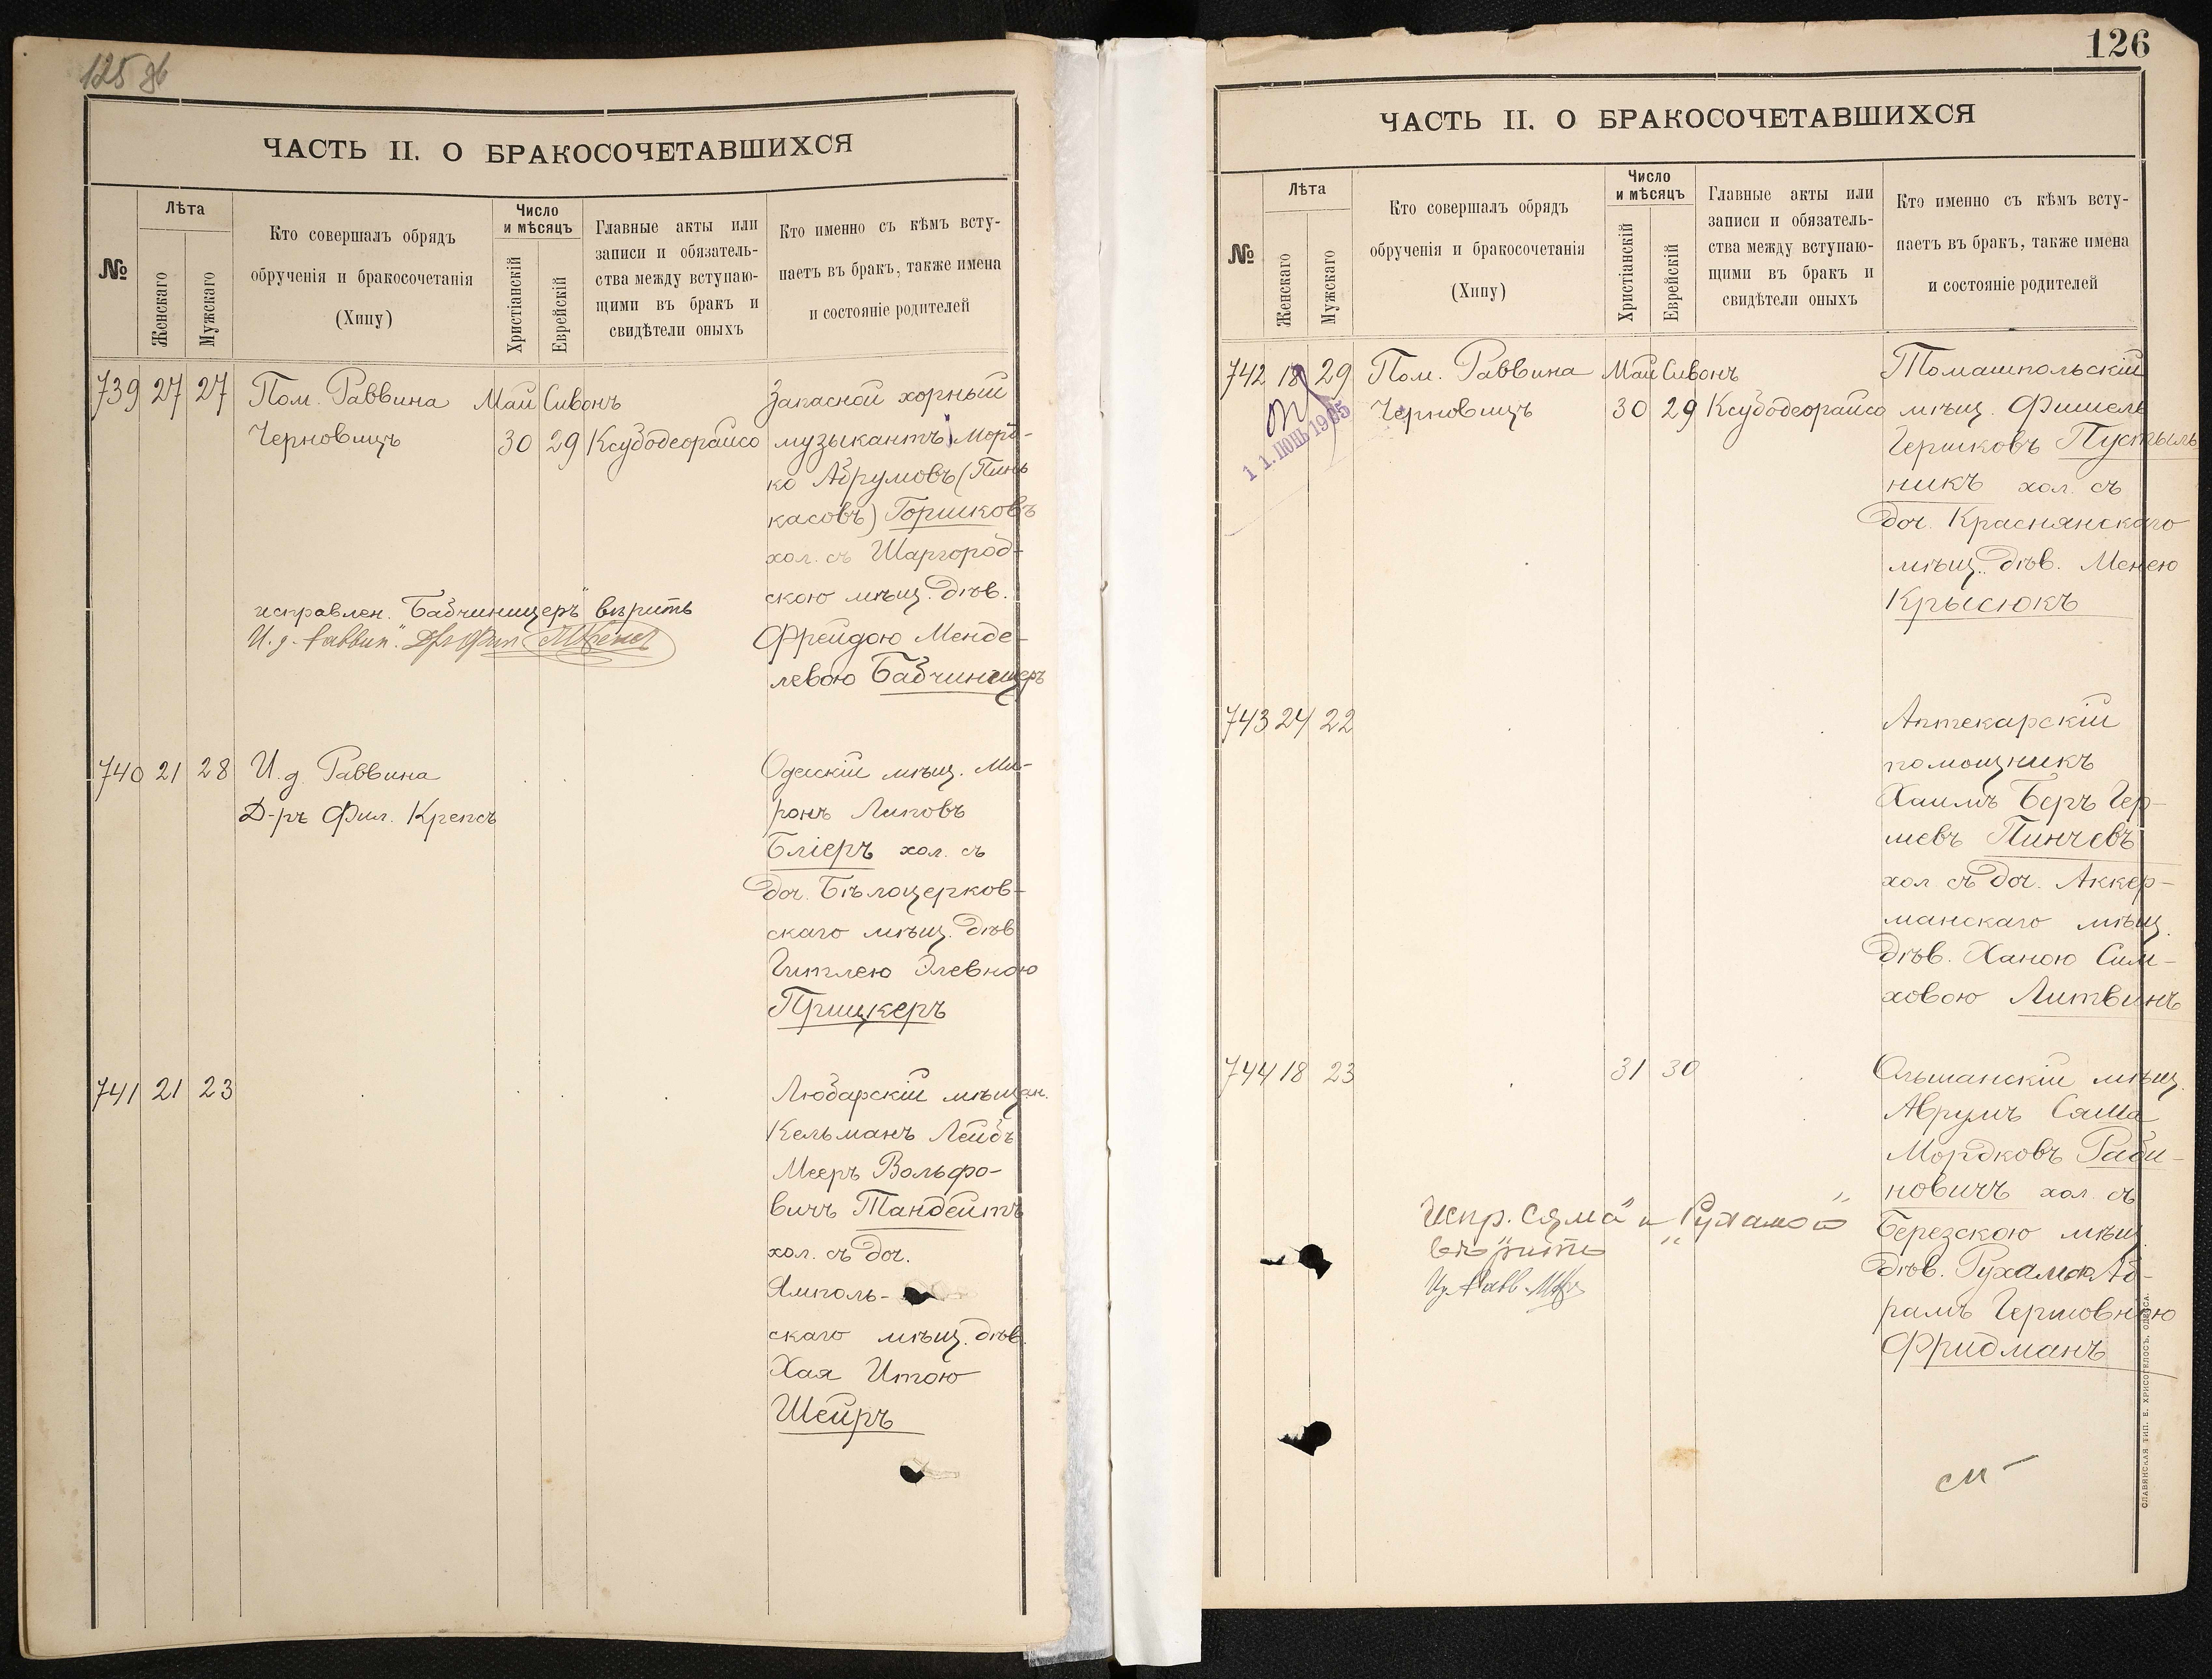 125 об
ЧАСТЬ II. О БРАКОСОЧЕТАВШИХСЯ
№
Лѣта
Женскаго
Мужскаго
Кто совершалъ обрядъ
обрученія и бракосочетанія
(Хипу)
Число
и мѣсяцъ
Христіанскій
Еврейскій
Главные акты или
записи и обязатель-
ства между вступаю-
щими въ бракъ и
свидѣтели оныхъ
Кто именно съ кѣмъ всту-
паетъ въ бракъ, также имена
и состояніе родителей
739 27 27 Пом. Раввина Май Сивонъ Запасной хорный
Черновицъ 30 29 Ксубодеорайсо музыкантъ Мордъ-
ко Абрумовъ (Пинь
касовъ) Горшковъ
хол. съ Шаргород-
скою мѣщ. дѣв.
Фрейдою Менде-
левою Бабчиницеръ
исправлен. "Бабчиницеръ" вѣрить
И. д. Раввин.
740 21 28 И. д. Раввина Одесскій мѣщ. Ми-
Д-ръ Фил. Крепсъ ронъ Липовъ
Бліеръ хол. съ
доч. Бѣлоцерков-
скаго мѣщ. дѣв
Гитлею Элевною
Прицкеръ
741 21 23 Любарскій мѣщан.
Кельманъ Лейбъ
Мееръ Вольфо-
вичъ Тандейтъ
хол. съ доч.
Ямполь-
скаго мѣщ. дѣв.
Хая Итою
Шейръ
126
ЧАСТЬ II. О БРАКОСОЧЕТАВШИХСЯ
№
Лѣта
Женскаго
Мужскаго
Кто совершалъ обрядъ
обрученія и бракосочетанія
(Хипу)
Число
и мѣсяцъ
Христіанскій
Еврейскій
Главные акты или
записи и обязатель-
ства между вступаю-
щими въ бракъ и
свидѣтели оныхъ
Кто именно съ кѣмъ всту-
паетъ въ бракъ, также имена
и состояніе родителей
742 18 29 Пом. Раввина Май Сивонъ Томашпольскій
Черновицъ 30 29 Ксубодеорайсо мѣщ. Фишель
11. ІЮНЬ 1905
Гершковъ Пустыль
никъ хол. съ
доч. Краснянскаго
мѣщ. дѣв. Менею
Крысюкъ
743 24 22 Аптекарскій
помощникъ
Хаимъ Беръ Гер-
шевъ Пинчевъ
хол. съ доч. Аккер-
манскаго мѣщ.
дѣв. Ханою Сим-
ховою Литвинъ
744 18 23 31 30 Ольшанскій мѣщ.
Аврумъ Сяма
Мордковъ Раби-
новичъ хол. съ
Березскою мѣщ.
дѣв. Рухамою Аб-
рамъ Гершовною
Фридманъ
Испр. "Сяма" и "Рухамою"
вѣрить
см
СЛАВЯНСКАЯ ТИП. Е. ХРИСОГЕЛОСЪ, ОДЕССА.